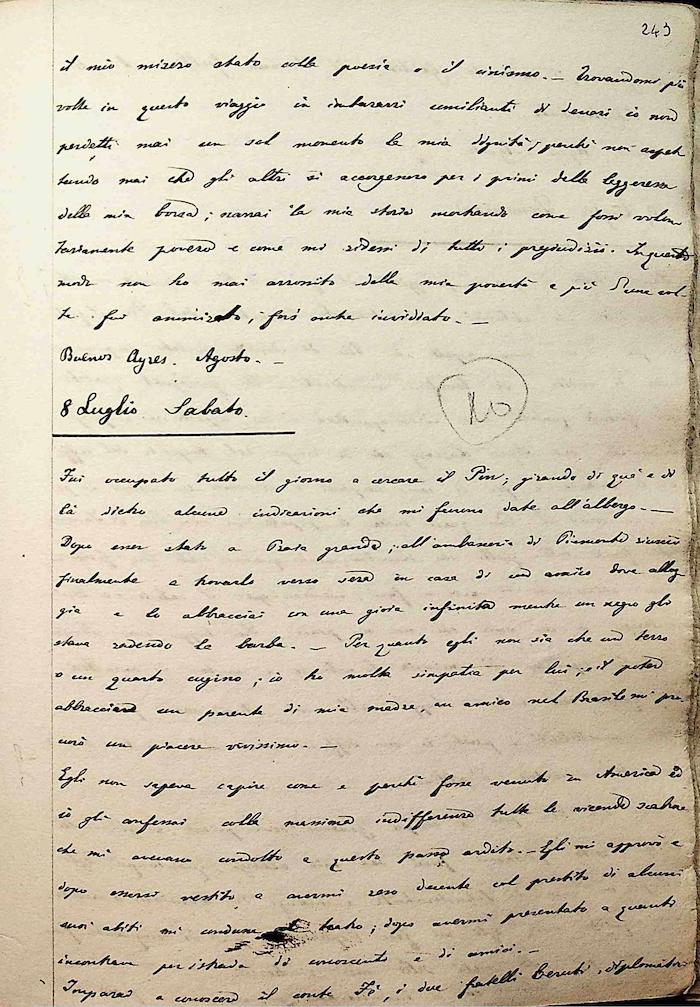 243
il mio misero stato colla poesia o il cinismo. — Trovandomi più
volte in questo viaggio in imbarazzi umilianti di denari io non
perdetti mai un sol momento la mia dignità; perché non aspet
tando mai che gli altri si accorgessero per i primi della leggerezza
della mia borsa; narrai la mia storia mostrando come fossi volon
tariamente povero e come mi ridessi di tutti i pregiudizii. In questo
modo non ho mai arrossito della mia povertà e più d'una vol-
ta fui ammirato, fors'anche invidiato. —
Buenos Ayres. Agosto. —
8 Luglio Sabato.
Fui occupato tutto il giorno a cercare il Pin; girando di quà e di
là dietro alcune indicazioni che mi furono date all'albergo. —
Dopo esser stato a Praia grande; all'ambasceria di Piemonte riuscii
finalmente a trovarlo verso sera in casa di un amico dove allog
gia e lo abbracciai con una gioia infinita mentre un negro gli
stava radendo la barba. — Per quanto egli non sia che un terzo
o un quarto cugino; io ho molta simpatia per lui; e il poter
abbracciare un parente di mia madre, un amico nel Brasile mi pro
curò un piacere vivissimo. —
Egli non sapeva capire come e perché fossi venuto in America ed
io gli confessai colla massima indifferenza tutte le vicende scabrose
che mi avevano condotto a questo passo ardito. — Egli mi approvò e
dopo essersi vestito e avermi reso decente col prestito di alcuni
suoi abiti mi condusse teatro; dopo avermi presentato a quanti
incontrava per istrada di conoscenti e di amici. —
Imparai a conoscere il conte Fè, i due fratelli Ceruti, diplomatici